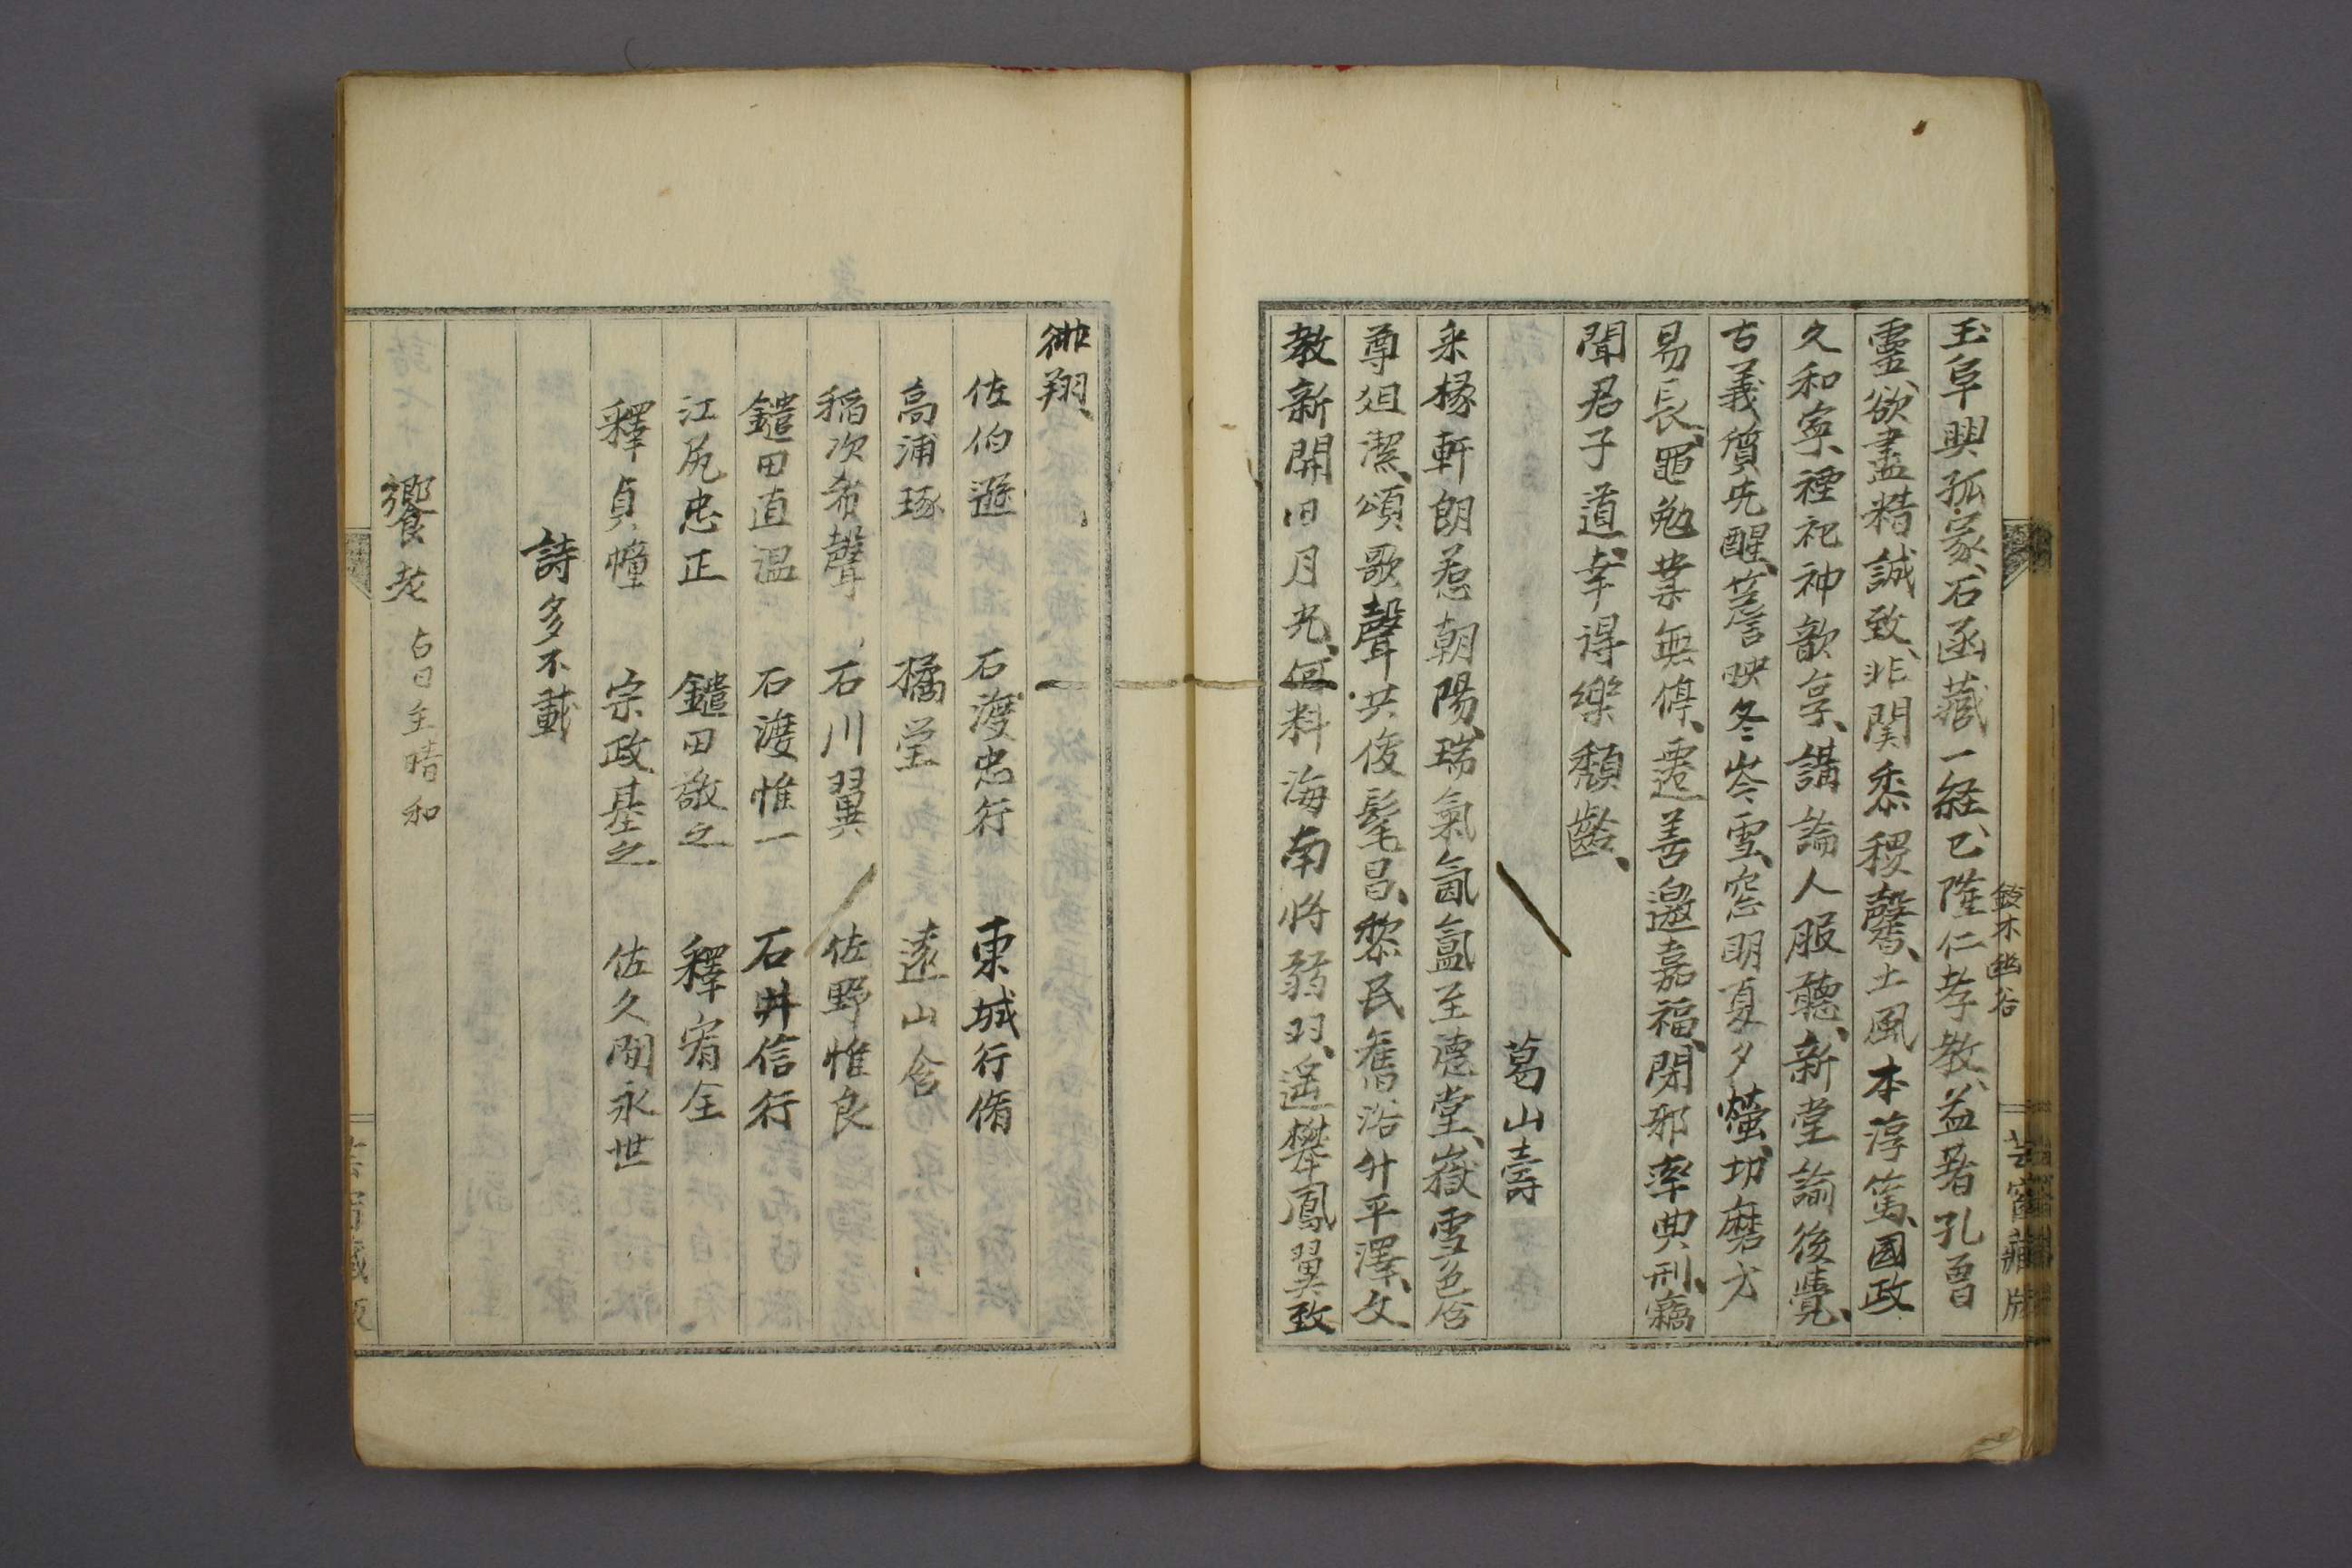 鈴木幽谷
玉阜興孤冢、石函藏一経、已隆仁孝教、益著孔曽
靈、欲盡精誠致、非関黍稷馨、土風本淳篤、國政
久和寧、禋祀神歆享、講論人服聽、新堂諭後覺、
古義質先醒、簷映冬岑雪、窓明夏夕螢、切磨才
易長、黽勉業無停、遷善邀嘉福、閑邪率典刑、竊
聞君子道、幸得樂頽齡、
葛山壽
采椽軒朗惹朝陽、瑞氣氤氳至德堂、嶽雪色含
尊俎潔、頌歌聲共俊髦昌、黎民舊浴升平澤、文
教新開日月光、何料海南将弱羽、遥攀鳳翼致
芸窗藏版
徘翔、
佐伯遜 石渡忠行 東城行脩
高浦琢 橘堂 遠山含
稲次希聲 石川翼 佐野惟良
鑓田直温 石渡惟一 石井信行
江尻忠正 鑓田敬之 釋宥全
釋貞幢 宗政基之 佐久間永世
詩多不載
饗老 占日全晴和
芸窗藏版